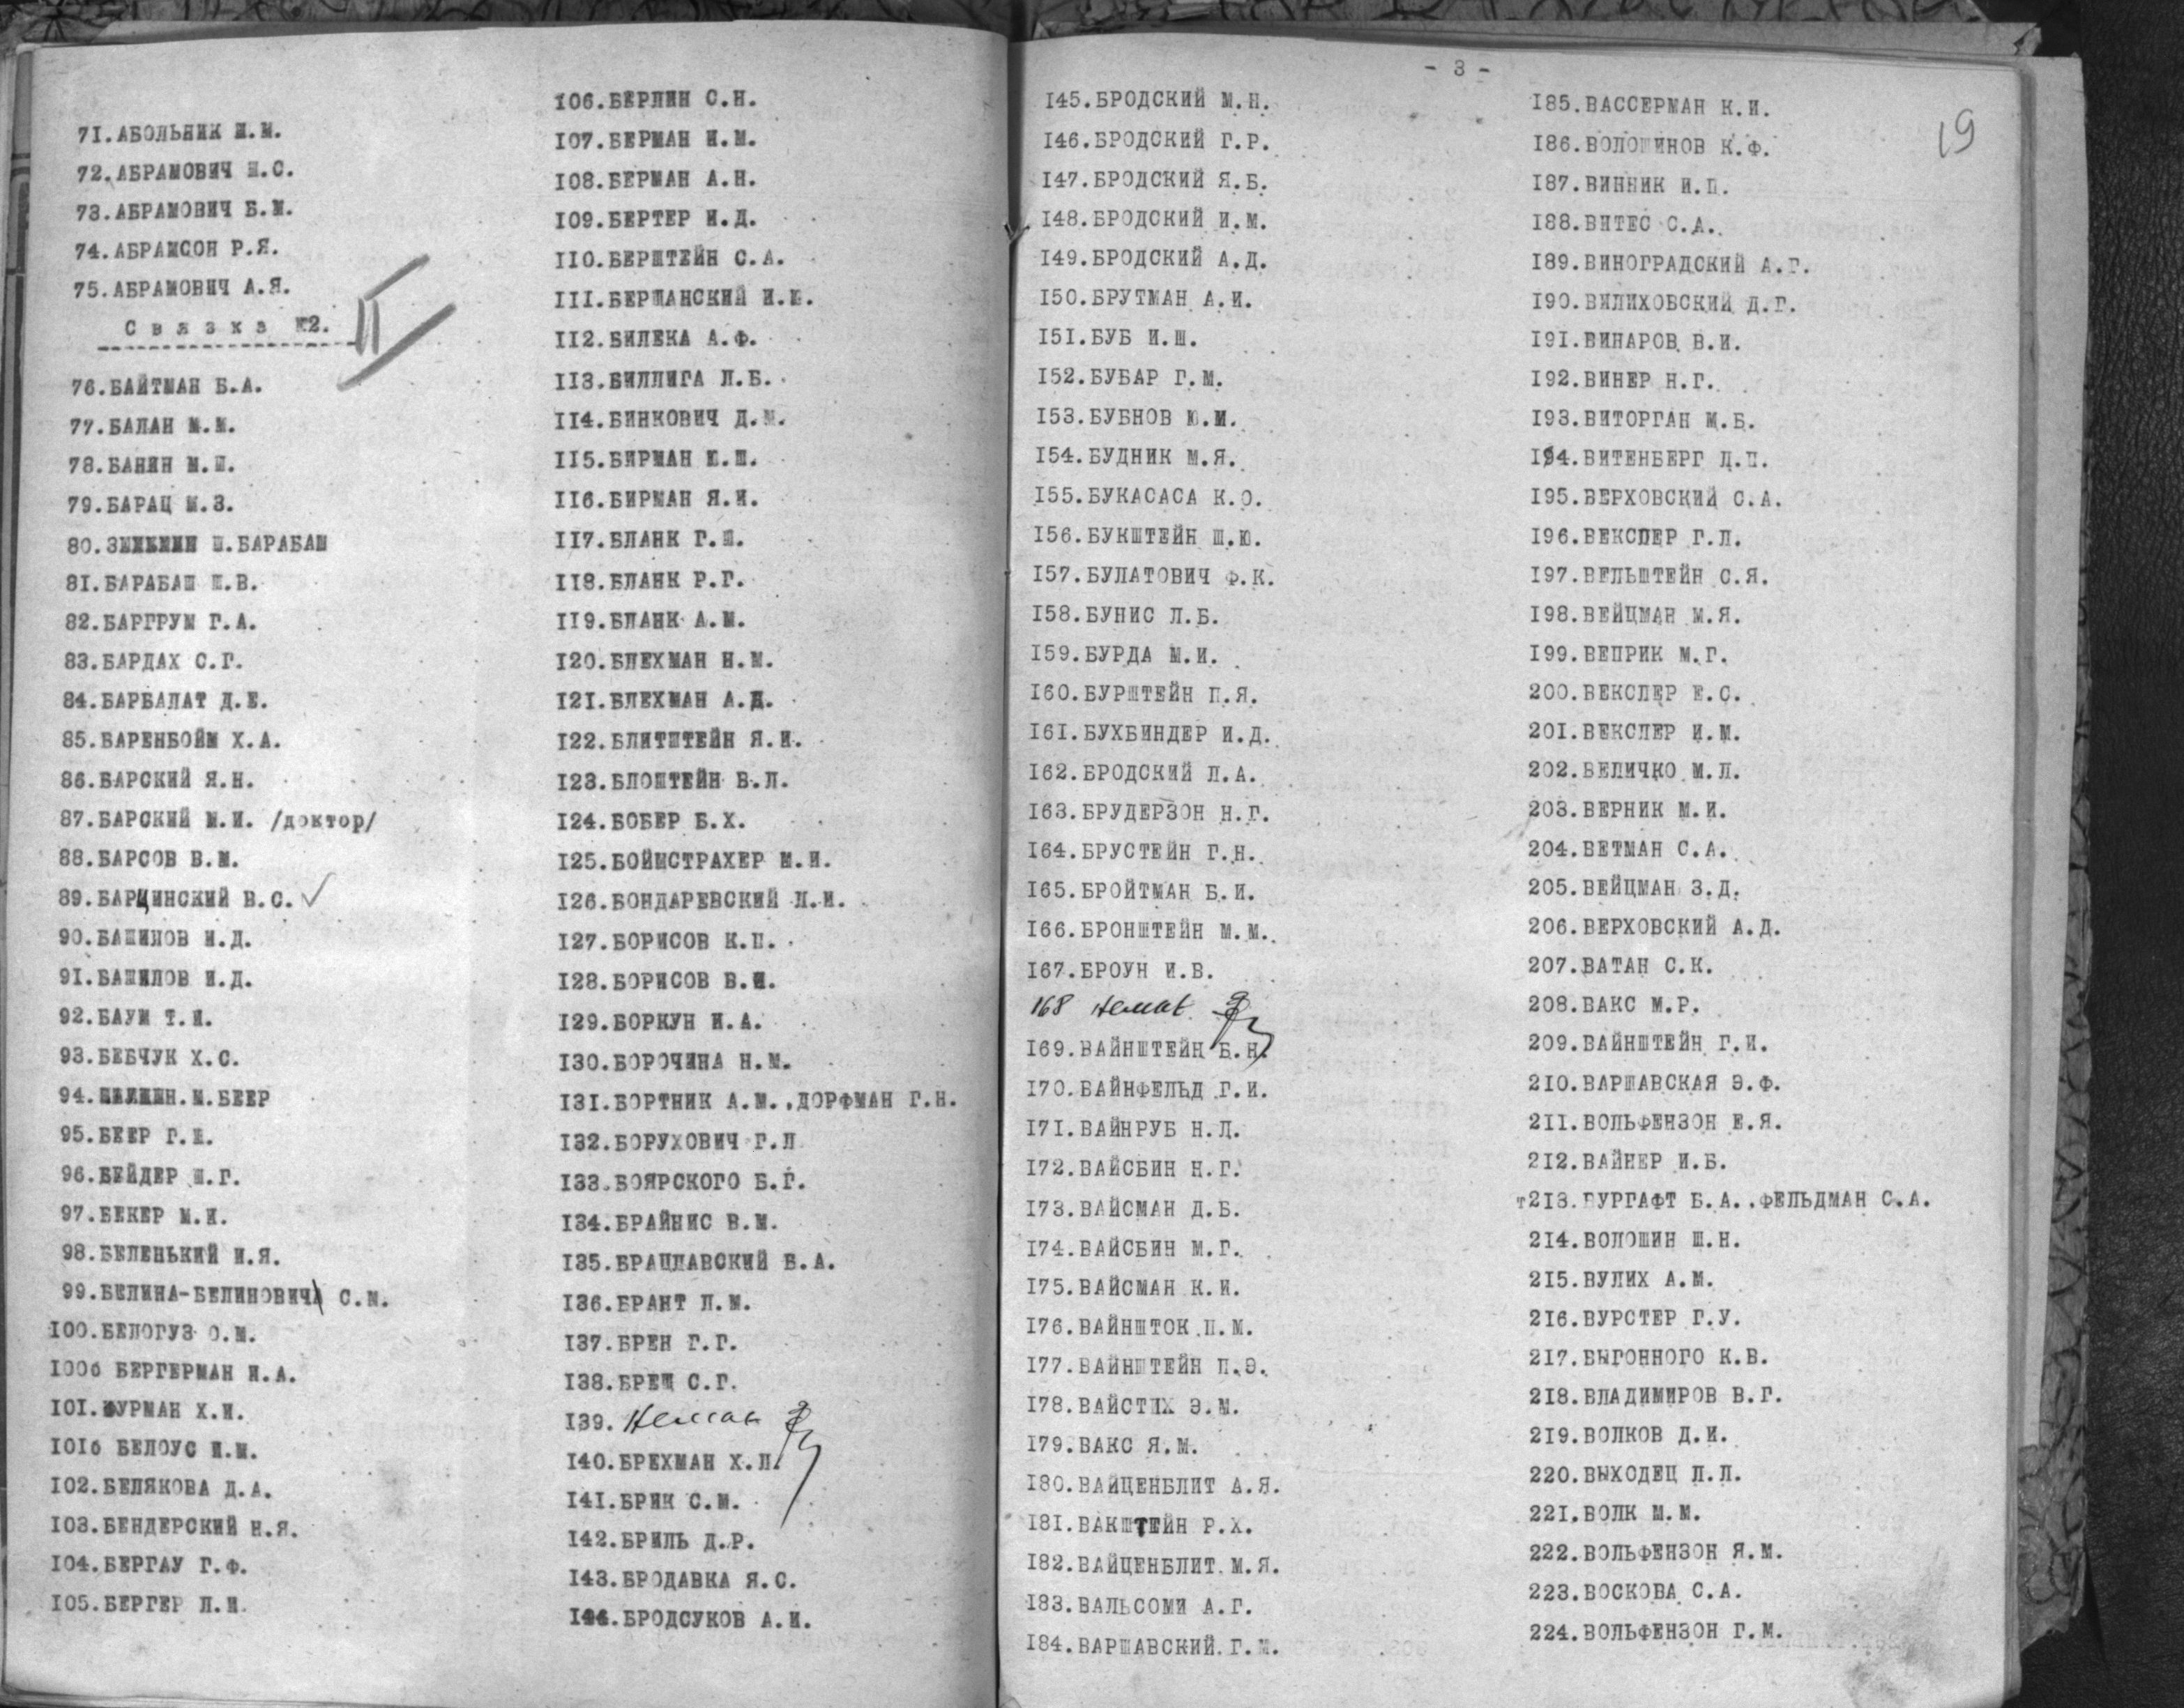 71.АБОЛЬНИК И.М.
72.АБРАМОВИЧ Н.С.
73.АБРАМОВИЧ Б.М.
74.АБРАМСОН Р.Я.
75.АБРАМОВИЧ А.Я.
Связка №2.
II
76.БАЙТМАН Б.А.
77.БАЛАН М.М.
78.БАНИН М.Ш.
79.БАРАЦ М.З.
80. Ш.БАРАБАШ
81.БАРАБАШ Ш.В.
82.БАРГРУМ Г.А.
83.БАРДАХ С.Г.
84.БАРБАЛАТ Д.Е.
85.БАРЕНБОЙМ Х.А.
86.БАРСКИЙ Я.Н.
87.БАРСКИЙ М.И. /доктор/
88.БАРСОВ В.М.
89.БАРЦИНСКИЙ В.С. ✓
90.БАШИЛОВ И.Д.
91.БАШИЛОВ И.Д.
92.БАУМ Т.И.
93.БЕБЧУК Х.С.
94. М.БЕЕР
95.БЕЕР Г.Ш.
96.БЕЙДЕР Ш.Г.
97.БЕКЕР М.И.
98.БЕЛЕНЬКИЙ И.Я.
99.БЕЛИНА-БЕЛИНОВИЧ С.М.
100.БЕЛОГУЗ О.М.
100б БЕРГЕРМАН И.А.
101.ФУРМАН Х.И.
101б БЕЛОУС И.М.
102.БЕЛЯКОВА Д.А.
103.БЕНДЕРСКИЙ Н.Я.
104.БЕРГАУ Г.Ф.
105.БЕРГЕР Л.И.
106.БЕРЛИН С.Н.
107.БЕРМАН И.М.
108.БЕРМАН А.Н.
109.БЕРТЕР И.Д.
110.БЕРШТЕЙН С.А.
111.БЕРШАНСКИЙ И.Ш.
112.БИЛЕКА А.Ф.
113.БИЛЛИГА Л.Б.
114.БИНКОВИЧ Д.М.
115.БИРМАН Ю.Ш.
116.БИРМАН Я.И.
117.БЛАНК Г.Ш.
118.БЛАНК Р.Г.
119.БЛАНК А.М.
120.БЛЕХМАН Н.М.
121.БЛЕХМАН А.Д.
122.БЛИТШТЕЙН Я.И.
123.БЛОШТЕЙН В.Л.
124.БОБЕР Б.Х.
125.БОЙМСТРАХЕР М.И.
126.БОНДАРЕВСКИЙ Л.И.
127.БОРИСОВ К.П.
128.БОРИСОВ В.И.
129.БОРКУН И.А.
130.БОРОЧИНА Н.М.
131.БОРТНИК А.М.,ДОРФМАН Г.Н.
132.БОРУХОВИЧ Г.Л
133.БОЯРСКОГО Б.Г.
134.БРАЙНИС В.М.
135.БРАЦЛАВСКИЙ В.А.
136.БРАНТ Л.М.
137.БРЕН Г.Г.
138.БРЕЩ С.Г.
139.
140.БРЕХМАН Х.Л.
141.БРИК С.М.
142.БРИЛЬ Д.Р.
143.БРОДАВКА Я.С.
144.БРОДСУКОВ А.И.
- 3 -
19
145.БРОДСКИЙ М.Н.
146.БРОДСКИЙ Г.Р.
147.БРОДСКИЙ Я.Б.
148.БРОДСКИЙ И.М.
149.БРОДСКИЙ А.Д.
150.БРУТМАН А.И.
151.БУБ И.Ш.
152.БУБАР Г.М.
153.БУБНОВ Ю.М.
154.БУДНИК М.Я.
155.БУКАСАСА К.О.
156.БУКШТЕЙН Ш.Ю.
157.БУЛАТОВИЧ Ф.К.
158.БУНИС Л.Б.
159.БУРДА М.И.
160.БУРШТЕЙН П.Я.
161.БУХБИНДЕР И.Д.
162.БРОДСКИЙ Л.А.
163.БРУДЕРЗОН Н.Г.
164.БРУСТЕЙН Г.Н.
165.БРОЙТМАН Б.И.
166.БРОНШТЕЙН М.М.
167.БРОУН И.В.
168
169.ВАЙНШТЕЙН Б.Н.
170.ВАЙНФЕЛЬД Г.И.
171.ВАЙНРУБ Н.Д.
172.ВАЙСБИН Н.Г.
173.ВАЙСМАН Д.Б.
174.ВАЙСБИН М.Г.
175.ВАЙСМАН К.И.
176.ВАЙНШТОК П.М.
177.ВАЙНШТЕЙН П.Э.
178.ВАЙСТИХ Э.М.
179.ВАКС Я.М.
180.ВАЙЦЕНБЛИТ А.Я.
181.ВАКШТЕЙН Р.Х.
182.ВАЙЦЕНБЛИТ М.Я.
183.ВАЛЬСОМИ А.Г.
184.ВАРШАВСКИЙ Г.М.
185.ВАССЕРМАН К.И.
186.ВОЛОШИНОВ К.Ф.
187.ВИННИК И.П.
188.ВИТЕС С.А.
189.ВИНОГРАДСКИЙ А.Г.
190.ВИЛИХОВСКИЙ Д.Г.
191.ВИНАРОВ В.И.
192.ВИНЕР Н.Г.
193.ВИТОРГАН М.Б.
194.ВИТЕНБЕРГ Д.П.
195.ВЕРХОВСКИЙ С.А.
196.ВЕКСЛЕР Г.Л.
197.ВЕЛЬШТЕЙН С.Я.
198.ВЕЙЦМАН М.Я.
199.ВЕПРИК М.Г.
200.ВЕКСЛЕР Е.С.
201.ВЕКСЛЕР И.М.
202.ВЕЛИЧКО М.Л.
203.ВЕРНИК М.И.
204.ВЕТМАН С.А.
205.ВЕЙЦМАН З.Д.
206.ВЕРХОВСКИЙ А.Д.
207.ВАТАН С.К.
208.ВАКС М.Р.
209.ВАЙНШТЕЙН Г.И.
210.ВАРШАВСКАЯ Э.Ф.
211.ВОЛЬФЕНЗОН Е.Я.
212.ВАЙНЕР И.Б.
т213.ВУРГАФТ Б.А.,ФЕЛЬДМАН С.А.
214.ВОЛОШИН Ш.Н.
215.ВУЛИХ А.М.
216.ВУРСТЕР Г.У.
217.ВЫГОННОГО К.В.
218.ВЛАДИМИРОВ В.Г.
219.ВОЛКОВ Д.И.
220.ВЫХОДЕЦ Л.Л.
221.ВОЛК М.М.
222.ВОЛЬФЕНЗОН Я.М.
223.ВОСКОВА С.А.
224.ВОЛЬФЕНЗОН Г.М.